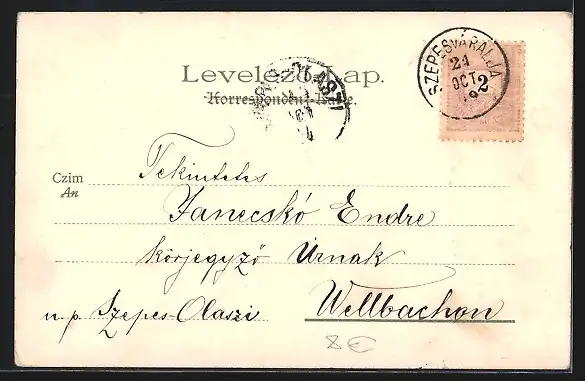 Levelező-Lap.
Korrespondenz-Karte.
SZEPESVÁRALJA
21
OCT.
2
Czim
An
Tekintetes
Janecskó Endre
körjegyző Úrnak
u. p. Szepes-Olaszi
Wellbachon
8 €